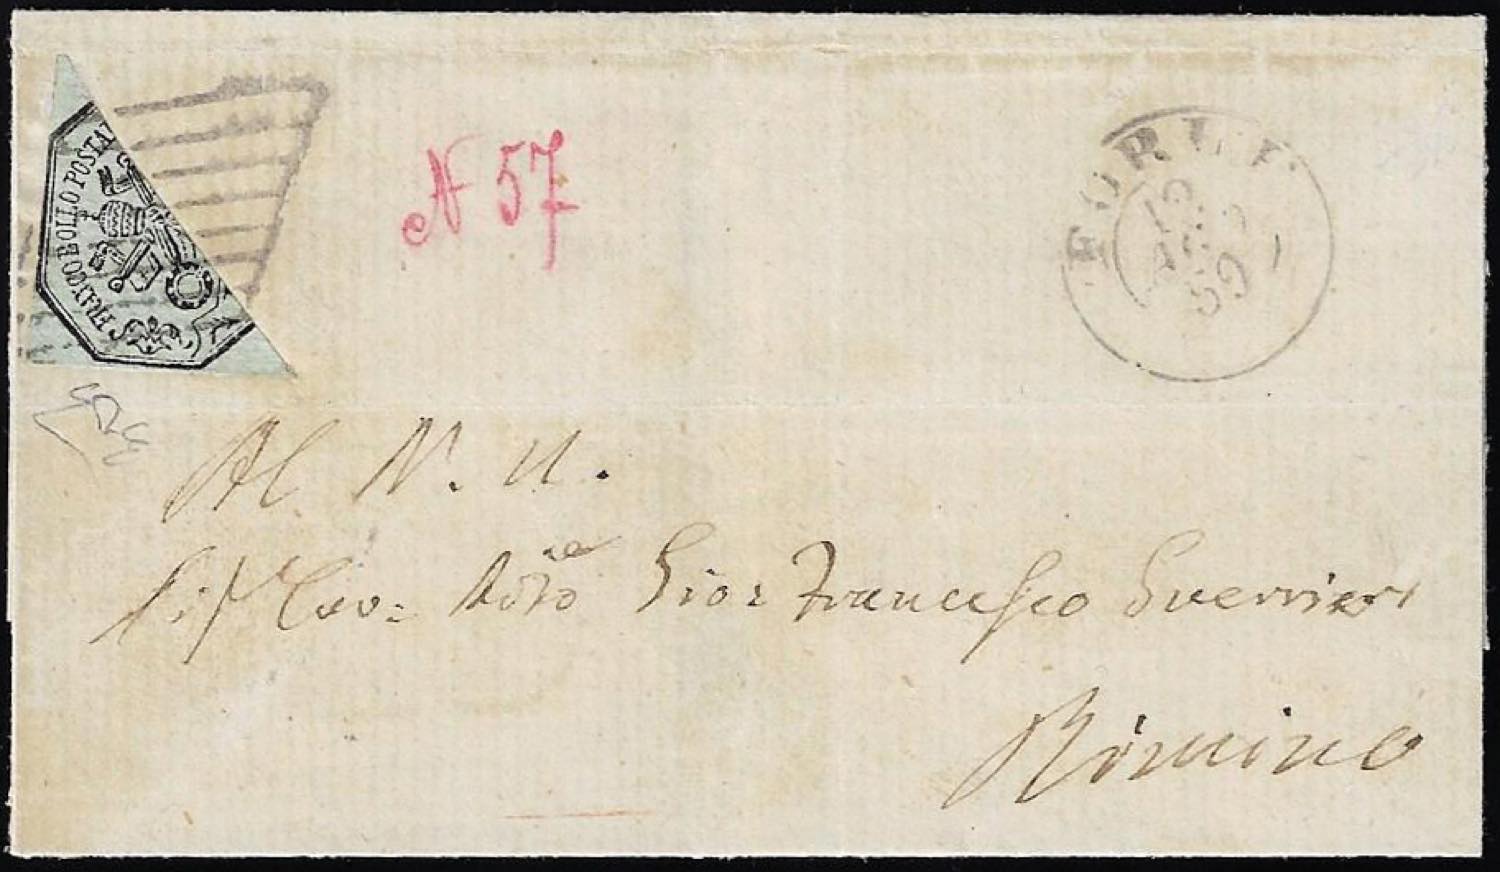 FRANCO BOLLO POSTAL
N 57
FORLI
12
AGO
59
Al N. U.
Sig Cav: Gior Francesco Guerrieri
Rimino